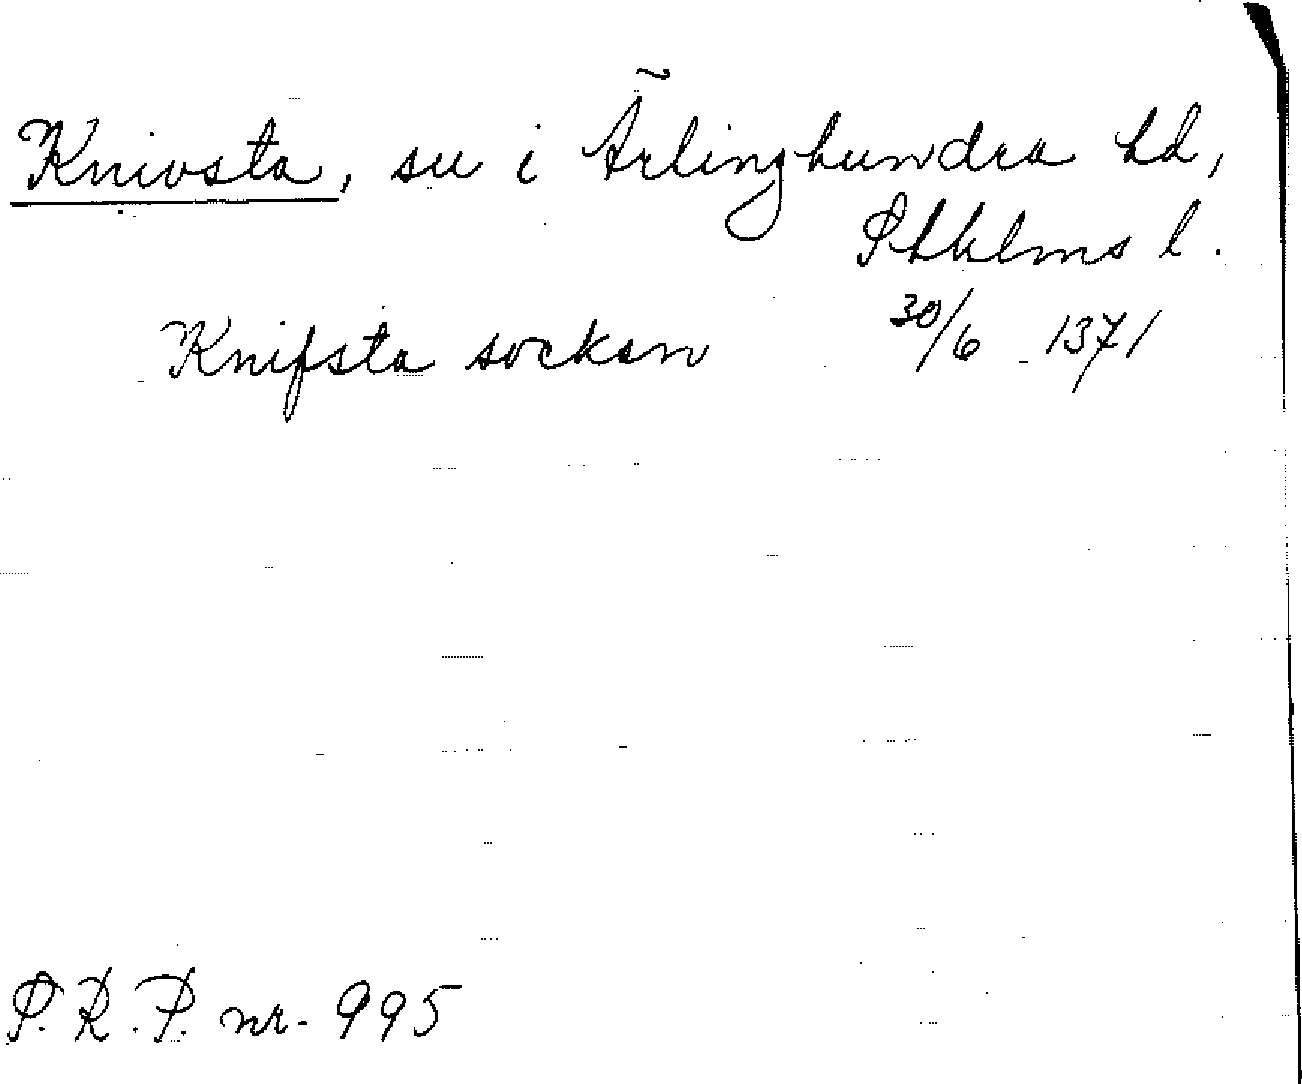 Knivsta, sn i Ärlinghundra hd,
Sthlms l.
Knifsta sockan 30/6 1371
S.R.P. nr. 995